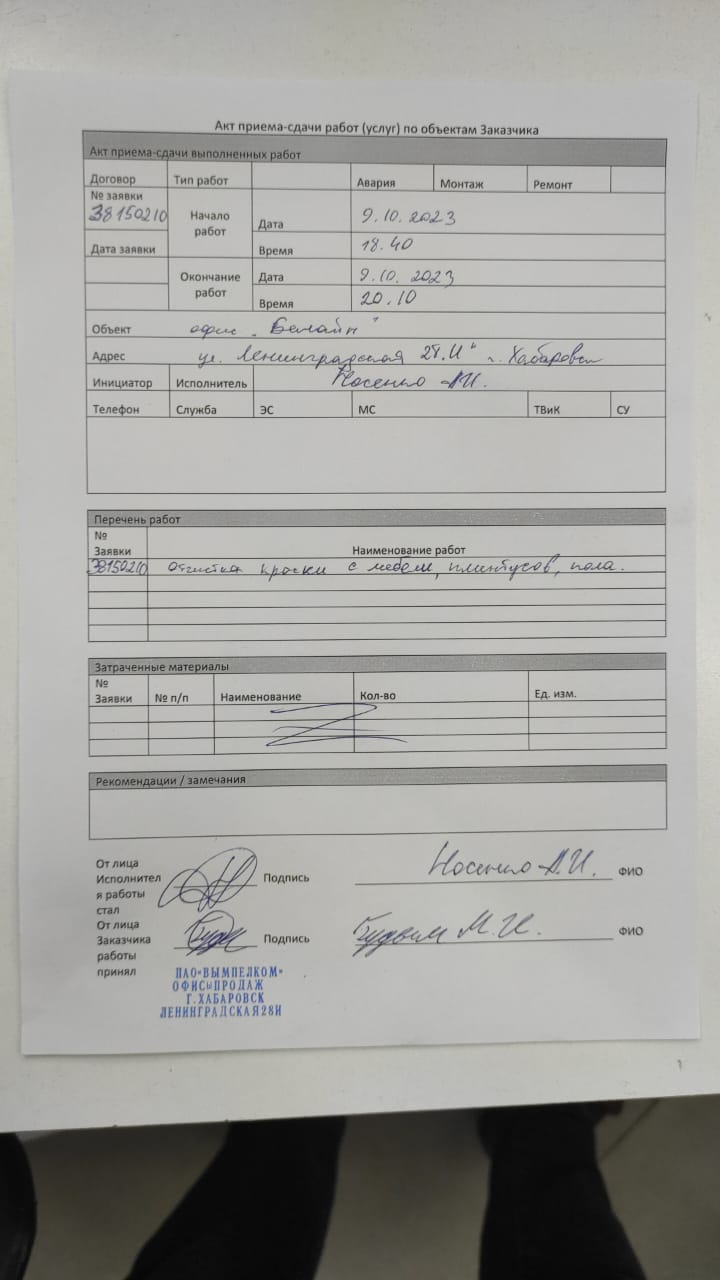 Акт приема-сдачи работ (услуг) по объектам Заказчика
Акт приема-сдачи выполненных работ
Договор Тип работ Авария Монтаж Ремонт
№ заявки
38150210 Начало работ Дата 9.10.2023
Дата заявки Время 18.40
Окончание работ Дата 9.10.2023
Время 20.10
Объект офис „Билайн"
Адрес ул. Ленинградская 28 „И" г. Хабаровск
Инициатор Исполнитель Носенко А.И.
Телефон Служба ЭС МС ТВиК СУ
Перечень работ
№
Заявки Наименование работ
38150210 Отчистка краски с мебели, плинтусов, пола.
Затраченные материалы
№
Заявки № п/п Наименование Кол-во Ед. изм.
Рекомендации / замечания
От лица
Исполнител
я работы
стал
Подпись Носенко А.И. ФИО
От лица
Заказчика
работы
принял
Подпись М.И. ФИО
ПАО«ВЫМПЕЛКОМ»
ОФИСыПРОДАЖ
Г.ХАБАРОВСК
ЛЕНИНГРАДСКАЯ28И